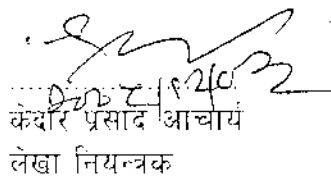 केदार प्रसाद आचार्य
लेखा नियन्त्रक